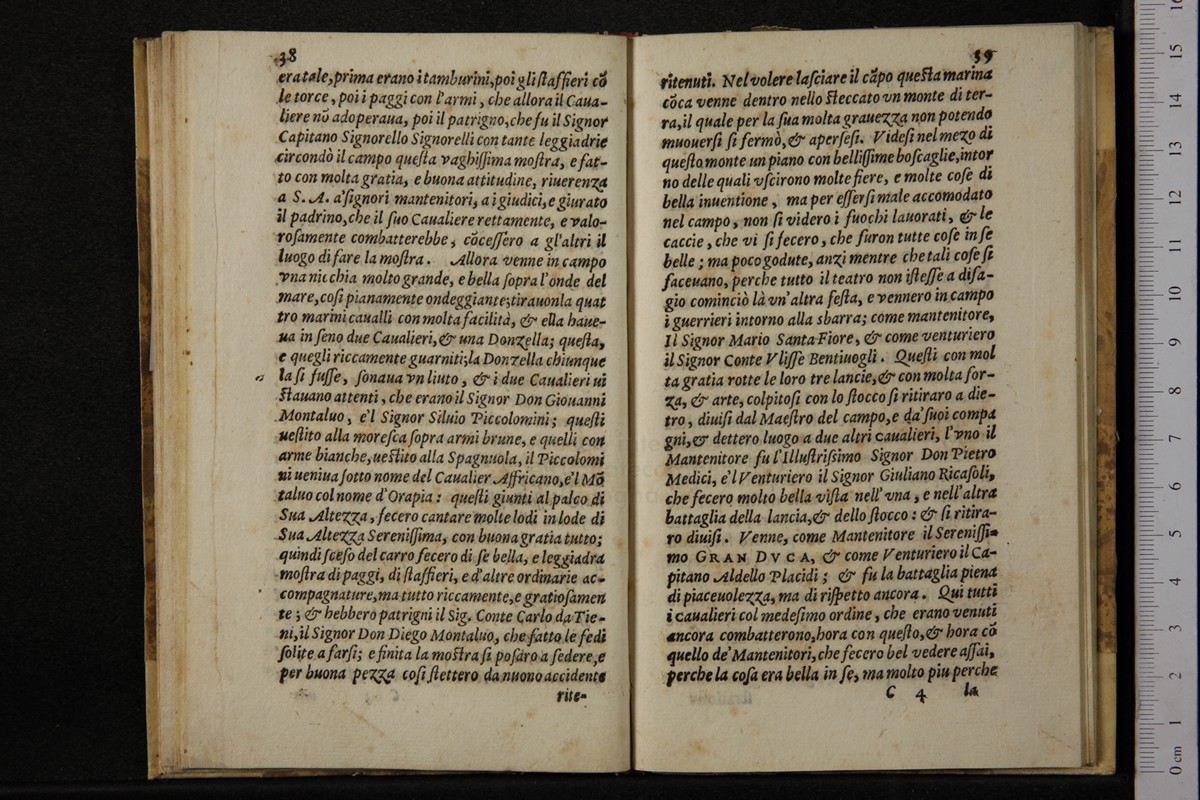 38
era tale, prima erano i tamburini, poi gli ſtaffieri cō
le torce, poi i paggi con l'armi, che allora il Caua-
liere nō adoperaua, poi il patrigno, che fu il Signor
Capitano Signorello Signorelli con tante leggiadrie
circondò il campo queſta vaghiſſima moſtra, e fat-
to con molta gratia, e buona attitudine, riuerenza
a S. A. a'ſignori mantenitori, a i giudici, e giurato
il padrino, che il ſuo Caualiere rettamente, e valo-
roſamente combatterebbe, cōceſſero a gl'altri il
luogo di fare la moſtra. Allora venne in campo
vna nicchia molto grande, e bella ſopra l'onde del
mare, coſi pianamente ondeggiante; tirauonla quat
tro marini caualli con molta facilità, & ella haue-
ua in ſeno due Caualieri, & una Donzella; queſta,
e quegli riccamente guarniti; la Donzella chiunque
la ſi fuſſe, ſonaua vn liuto, & i due Caualieri ui
ſtauano attenti, che erano il Signor Don Giouanni
Montaluo, e'l Signor Siluio Piccolomini; queſti
ueſtito alla moreſca ſopra armi brune, e quelli con
arme bianche, ueſtito alla Spagnuola, il Piccolomi
ni ueniua ſotto nome del Caualier Affricano, e'l Mō
taluo col nome d'Orapia: queſti giunti al palco di
Sua Altezza, fecero cantare molte lodi in lode di
Sua Altezza Sereniſſima, con buona gratia tutto;
quindi ſceſo del carro fecero di ſe bella, e leggiadra
moſtra di paggi, di ſtaffieri, e d'altre ordinarie ac-
compagnature, ma tutto riccamente, e gratioſamen
te; & hebbero patrigni il Sig. Conte Carlo da Tie-
ni, il Signor Don Diego Montaluo, che fatto le fedi
ſolite a farſi; e finita la moſtra ſi poſaro a ſedere, e
per buona pezza coſi ſtettero da nuouo accidente
rite-
39
ritenuti. Nel volere laſciare il cāpo queſta marina
cōca venne dentro nello ſteccato vn monte di ter-
ra, il quale per la ſua molta grauezza non potendo
muouerſi ſi fermò, & aperſeſi. Videſi nel mezo di
queſto monte un piano con belliſſime boſcaglie, intor
no delle quali vſcirono molte fiere, e molte coſe di
bella inuentione, ma per eſſerſi male accomodato
nel campo, non ſi videro i fuochi lauorati, & le
caccie, che vi ſi fecero, che furon tutte coſe in ſe
belle; ma poco godute, anzi mentre che tali coſe ſi
faceuano, perche tutto il teatro non iſteſſe a diſa-
gio cominciò là vn'altra feſta, e vennero in campo
i guerrieri intorno alla sbarra; come mantenitore,
Il Signor Mario Santa Fiore, & come venturiero
il Signor Conte Vliſſe Bentiuogli. Queſti con mol
ta gratia rotte le loro tre lancie, & con molta for-
za, & arte, colpitoſi con lo ſtocco ſi ritiraro a die-
tro, diuiſi dal Maeſtro del campo, e da'ſuoi compa
gni, & dettero luogo a due altri caualieri, l'vno il
Mantenitore fu l'Illuſtriſsimo Signor Don Pietro
Medici, e'l Venturiero il Signor Giuliano Ricaſoli,
che fecero molto bella viſta nell'vna, e nell'altra
battaglia della lancia, & dello ſtocco: & ſi ritira-
ro diuiſi. Venne, come Mantenitore il Sereniſſi-
mo GRAN DVCA, & come Venturiero il Ca-
pitano Aldello Placidi; & fu la battaglia piena
di piaceuolezza, ma di riſpetto ancora. Qui tutti
i caualieri col medeſimo ordine, che erano venuti
ancora combatterono, hora con queſto, & hora cō
quello de'Mantenitori, che fecero bel vedere aſſai,
perche la coſa era bella in ſe, ma molto piu perche
C 4 la
0 cm 1 2 3 4 5 6 7 8 9 10 11 12 13 14 15 16